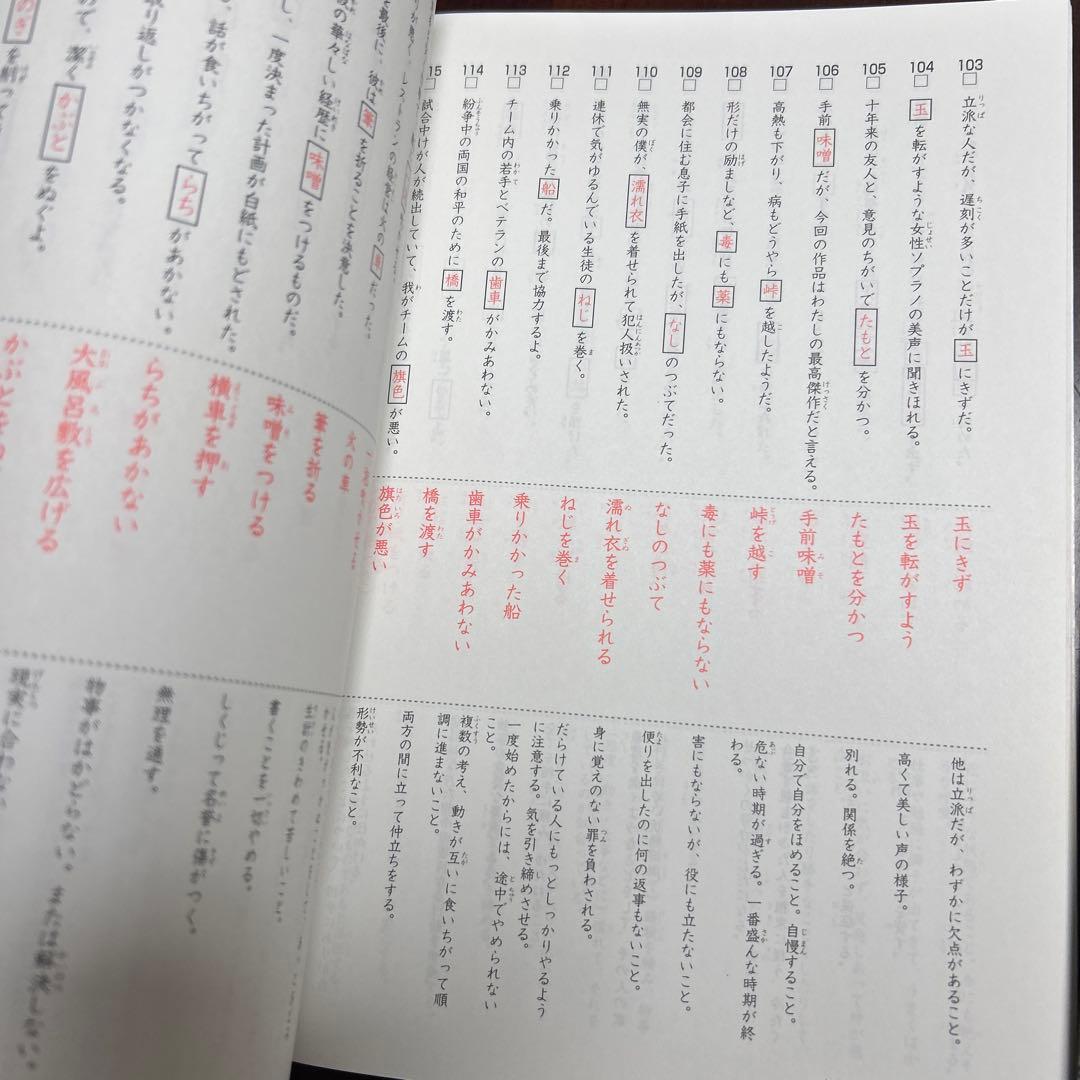 103
立派な人だが、遅刻が多いことだけが玉にきずだ。
りっぱ
ちこく
104
玉を転がすような女性ソプラノの美声に聞きほれる。
じょせい
105
十年来の友人と、意見のちがいでたもとを分かつ。
106
手前味噌だが、今回の作品はわたしの最高傑作だと言える。
けっさく
107
高熱も下がり、病もどうやら峠を越したようだ。
こ
108
形だけの励ましなど、毒にも薬にもならない。
はげ
109
都会に住む息子に手紙を出したが、なしのつぶてだった。
110
無実の僕が、濡れ衣を着せられて犯人扱いされた。
ぼく
はんにんあつか
111
連休で気がゆるんでいる生徒のねじを巻く。
ま
112
乗りかかった船だ。最後まで協力するよ。
113
チーム内の若手とベテランの歯車がかみあわない。
わかて
114
紛争中の両国の和平のために橋を渡す。
ふんそうちゅう
わた
15
試合中けが人が続出していて、我がチームの旗色が悪い。
わ
玉にきず
玉を転がすよう
たもとを分かつ
手前味噌
みそ
峠を越す
とうげ
こ
毒にも薬にもならない
なしのつぶて
濡れ衣を着せられる
ぬ
ぎぬ
ねじを巻く
ま
乗りかかった船
歯車がかみあわない
橋を渡す
わた
旗色が悪い
はたいろ
他は立派だが、わずかに欠点があること。
りっぱ
高くて美しい声の様子。
別れる。関係を絶つ。
た
自分で自分をほめること。自慢すること。
じまん
危ない時期が過ぎる。一番盛んな時期が終
あぶ
す
さか
わる。
害にもならないが、役にも立たないこと。
便りを出したのに何の返事もないこと。
たよ
身に覚えのない罪を負わされる。
つみ
だらけている人にもっとしっかりやるよう
に注意する。気を引き締めさせる。
し
一度始めたからには、途中でやめられない
とちゅう
こと。
複数の考え、動きが互いに食いちがって順
ふくすう
たが
調に進まないこと。
両方の間に立って仲立ちをする。
形勢が不利なこと。
けいせい
彼は筆を折ることを決意した。
の華々しい経歴に味噌をつけるものだ。
はなばな
し、一度決まった計画が白紙にもどされた。
、話が食いちがってらちがあかない。
取り返しがつかなくなる。
めて、潔くかぶとをぬぐよ。
火の車
筆を折る
味噌をつける
横車を押す
らちがあかない
大風呂敷を広げる
書くことを一切やめる。
しくじって名誉に傷がつく。
無理を通す。
物事がはかどらない。または解決しない。
現実に合わない